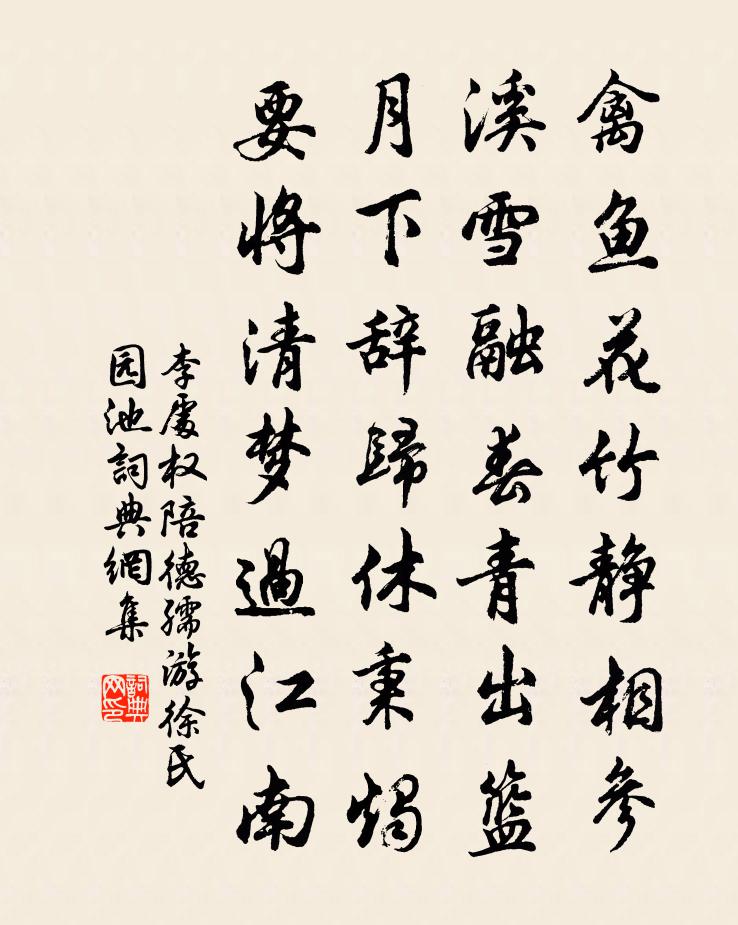 禽鱼花竹静相参
溪雪融春青出篮
月下辞歸休秉烛
要将清梦過江南
李處权陪德孺游徐氏
园池詞典網集
詞典网印